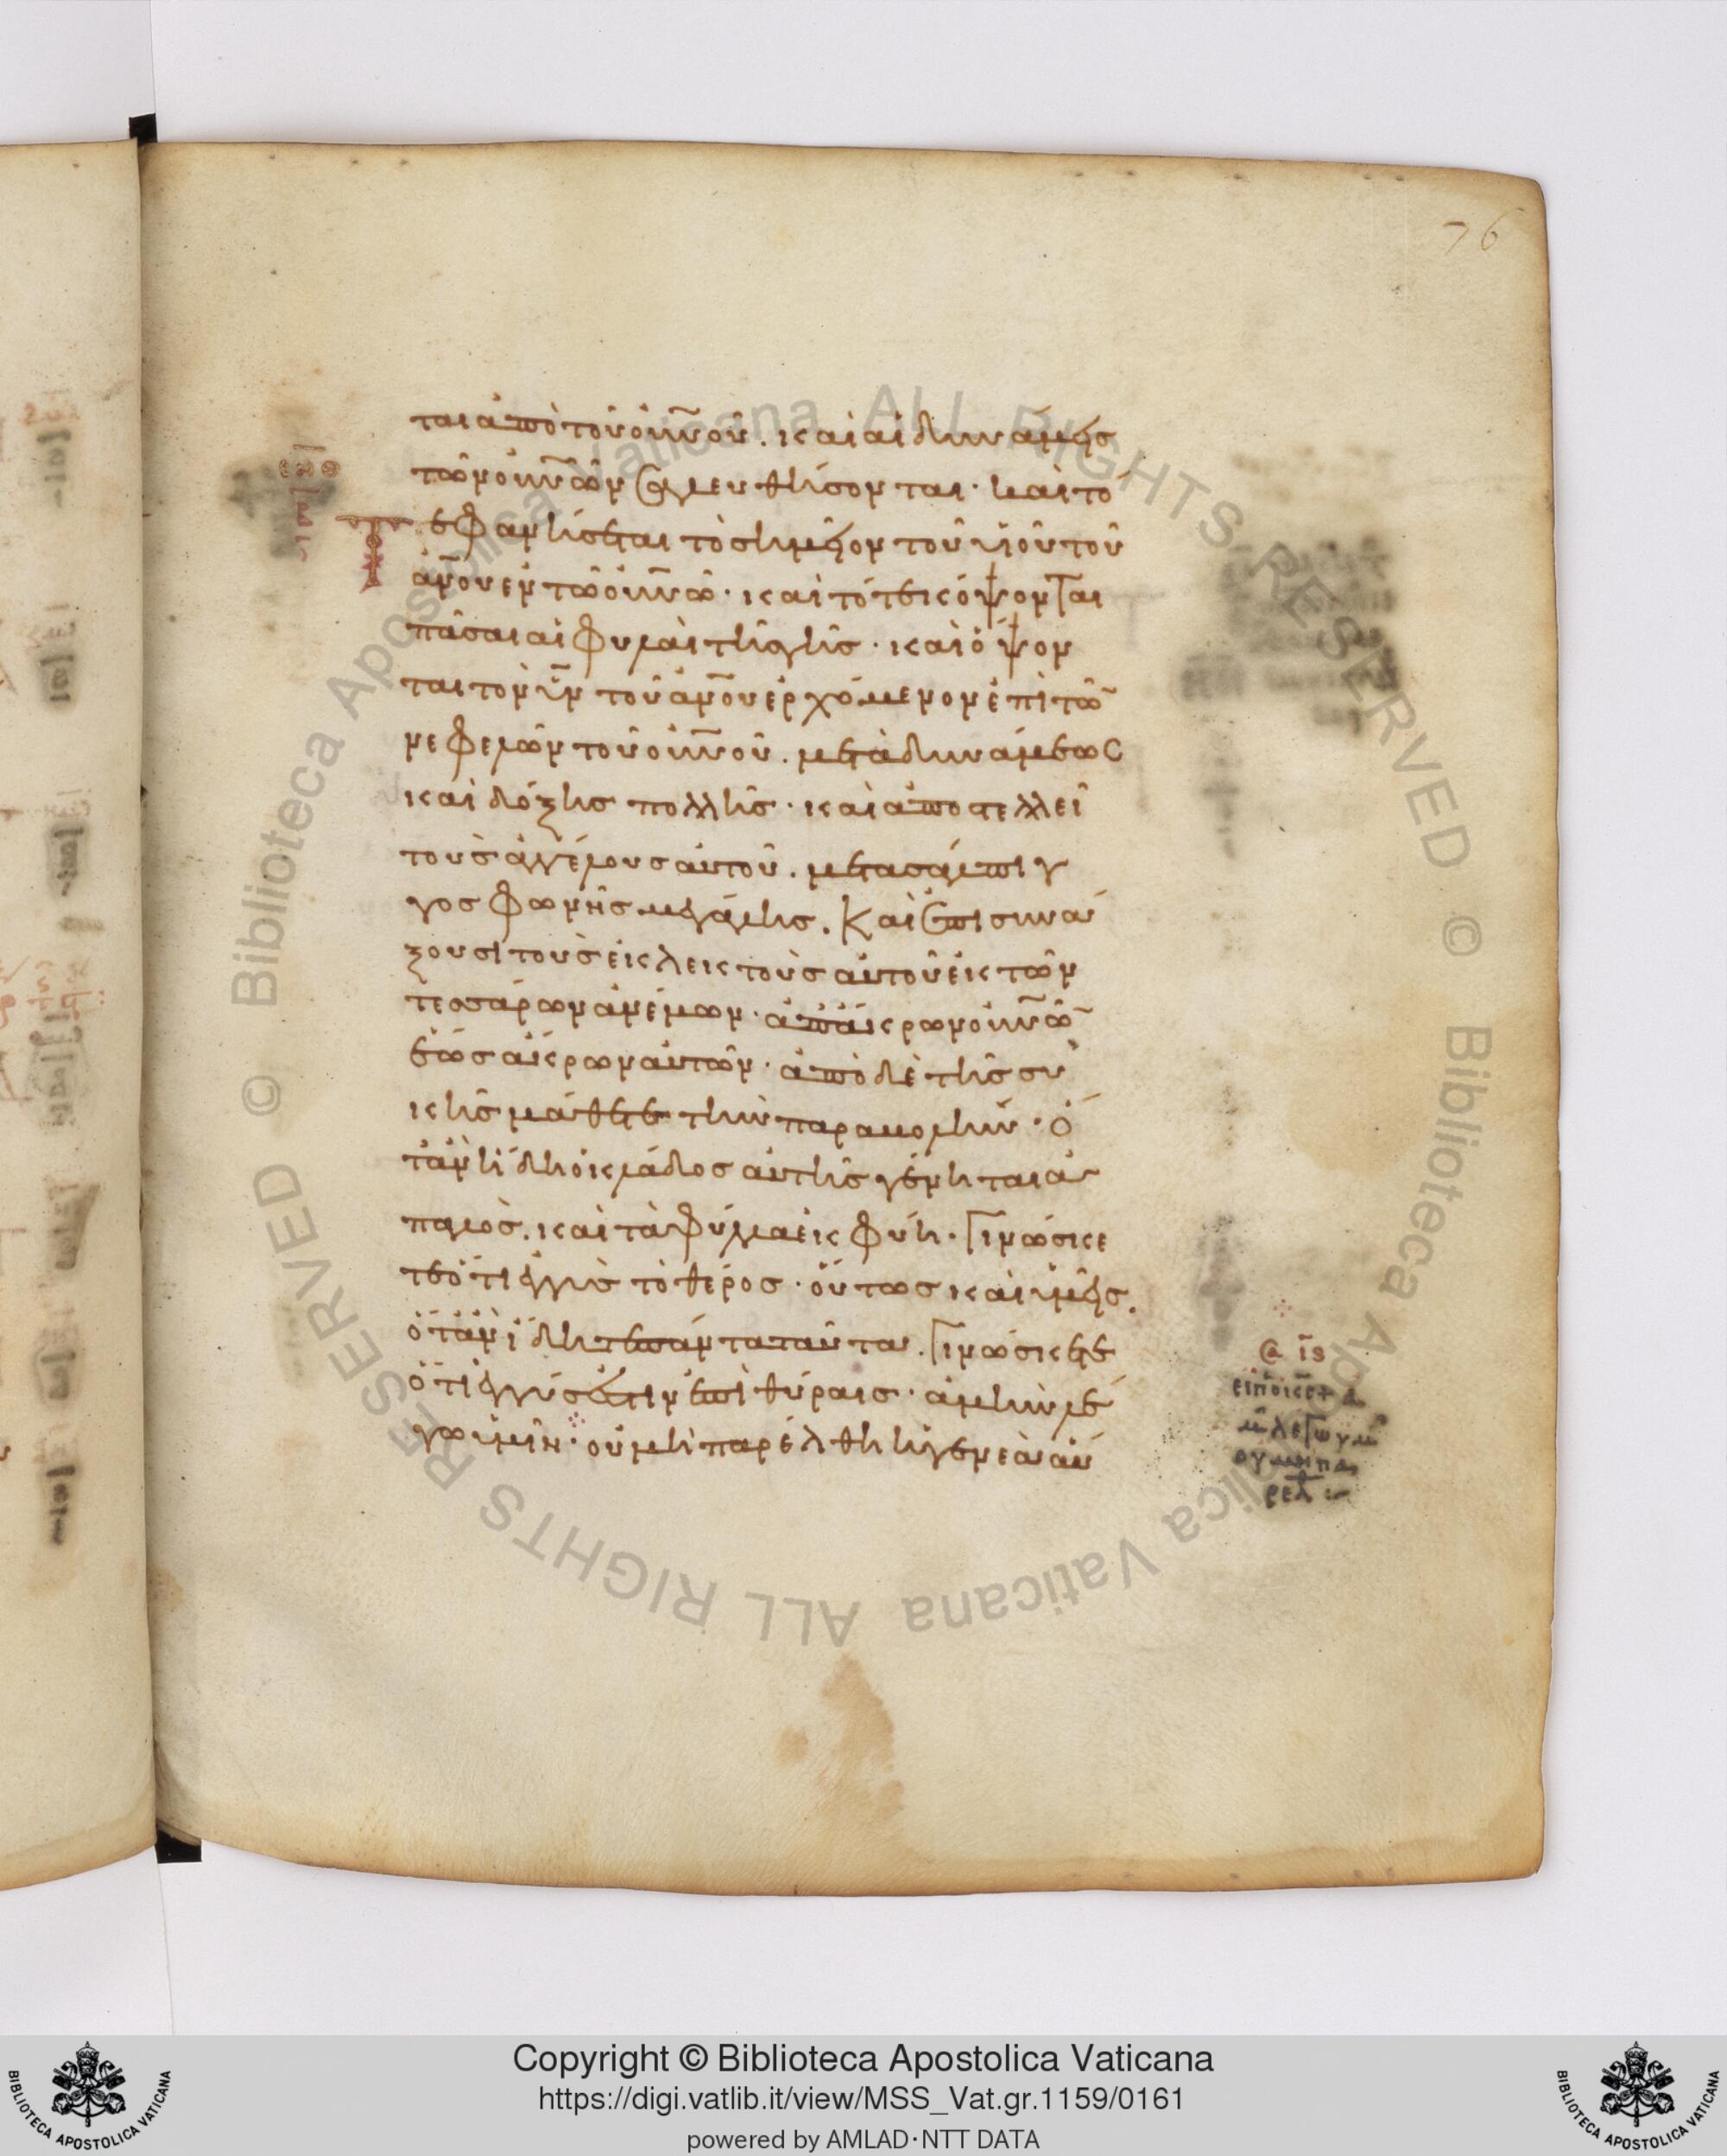 76
ται ἀπὸ τοῦ οὐν̅οῦ. καὶ αἱ δυνάμεις
τῶν οὐν̅ῶν σαλευθήσονται· καὶ τό
Τ
τε φανήσεται τὸ σημεῖον τοῦ υἱοῦ τοῦ
αν̅ου ἐν τῶ οὐν̅ῶ· καὶ τότε κόψονται
πᾶσαι αἱ φυλαὶ τῆς γῆς· καὶ ὄψον
ται τὸν υν̅ τοῦ αν̅ου ἐρχόμενον ἐπὶ τῶ̅
νεφελῶν τοῦ οὐν̅οῦ. μετὰ δυνάμεως
καὶ δόξης πολλῆς· καὶ ἀποστελλεῖ
τοὺς ἀγγέλους αὐτοῦ. μετὰ σάλπιγ
γος φωνῆς μεγάλης. Καὶ ἐπισυνά
ξουσι τοὺς ἐκλεκτοὺς αὐτοῦ ἐκ τῶν
τεσσάρων ἀνέμων· ἀπ' ἄκρων οὐν̅ῶ̅
ἕως ἄκρων αὐτῶν· ἀπὸ δὲ τῆς συ
κῆς μάθετε τὴν παραβολήν· ὅ
τὰν ἤδη ὁ κλάδος αὐτῆς γένηται ἁ
παλὸς. καὶ τὰ φύλλα ἐκφύη· Γινώσκε
τε ὅτι ἐγγὺς τὸ θέρος· οὕτως καὶ ὑμεῖς.
ὅταν ἴδητε πάντα ταῦτα. Γινώσκετε
ὅτι ἐγγύς ἐστιν ἐπὶ θύραις· ἀμὴν λέ
γω ὑμῖν· οὐ μὴ παρέλθη ἡ γενεὰ αὕ
εἶπ ὁ κς
ἀμ λεγω ὑμ
ου μη πα
ρελθ
Copyright © Biblioteca Apostolica Vaticana
https://digi.vatlib.it/view/MSS_Vat.gr.1159/0161
powered by AMLAD·NTT DATA
BIBLIOTECA APOSTOLICA VATICANA
BIBLIOTECA APOSTOLICA VATICANA
© Biblioteca Apostolica Vaticana ALL RIGHTS RESERVED © Biblioteca Apostolica Vaticana ALL RIGHTS RESERVED